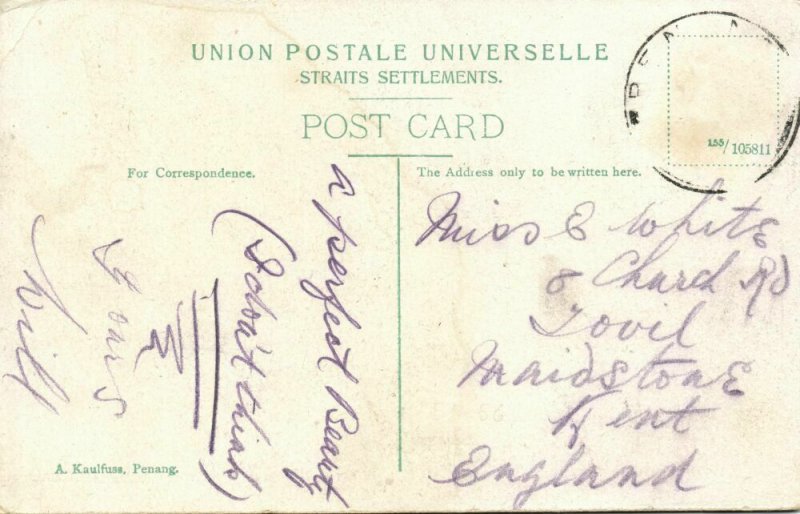 UNION POSTALE UNIVERSELLE
STRAITS SETTLEMENTS.
POST CARD
For Correspondence.
The Address only to be written here.
155/105811
PENA
a perfect Beauty
(I don't think)
Yours
Will
Miss E White
8 Church Rd
Tovil
Maidstone
Kent
England
A. Kaulfuss, Penang.